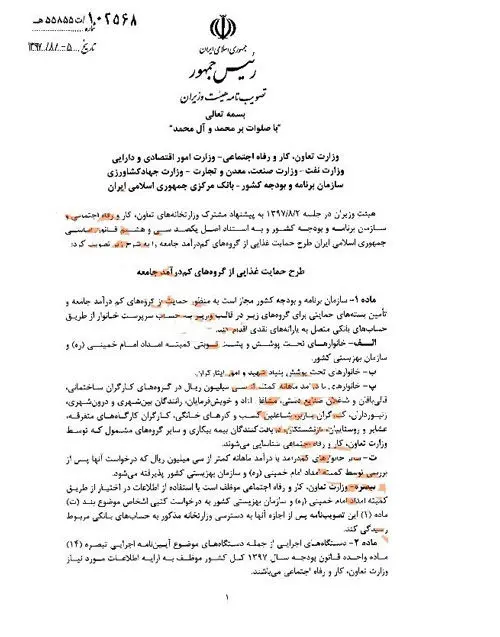 ۱۰۲۵۶۸/ت۵۵۸۵۵هـ
شماره
تاریخ ۱۳۹۷/۸/۵
جمهوری اسلامی ایران
رئیس جمهور
تصویب نامه هیئت وزیران
بسمه تعالی
"با صلوات بر محمد و آل محمد"
وزارت تعاون، کار و رفاه اجتماعی- وزارت امور اقتصادی و دارایی
وزارت نفت- وزارت صنعت، معدن و تجارت - وزارت جهادکشاورزی
سازمان برنامه و بودجه کشور- بانک مرکزی جمهوری اسلامی ایران
هیئت وزیران در جلسه ۱۳۹۷/۸/۲ به پیشنهاد مشترک وزارتخانه‌های تعاون، کار و رفاه اجتماعی و
سازمان برنامه و بودجه کشور و به استناد اصل یکصد سی و هشتم قانون اساسی
جمهوری اسلامی ایران طرح حمایت غذایی از گروه‌های کم‌درآمد جامعه را به شرح زیر تصویب کرد:
طرح حمایت غذایی از گروه‌های کم‌درآمد جامعه
ماده ۱- سازمان برنامه و بودجه کشور مجاز است به منظور حمایت از گروه‌های کم درآمد جامعه و
تأمین بسته‌های حمایتی برای گروه‌های زیر در قالب واریز به حساب سرپرست خانوار از طریق
حساب‌های بانکی متصل به یارانه‌های نقدی اقدام کند.
الف- خانوارهای تحت پوشش و پشت نوبتی کمیته امداد امام خمینی (ره) و
سازمان بهزیستی کشور.
ب- خانوارهای تحت پوشش بنیاد شهید و امور ایثارگران.
پ- خانوارهای با درآمد ماهانه کمتر از سی میلیون ریال در گروه‌های کارگران ساختمانی،
قالی‌بافان و شاغلان صنایع دستی، مشاغل آزاد و خویش‌فرمایان، رانندگان بین‌شهری و درون‌شهری،
زنبورداران، کارگران باربر، شاغلین کسب و کارهای خانگی، کارگران کارگاه‌های متفرقه،
عشایر و روستاییان، بازنشستگان، دریافت‌کنندگان بیمه بیکاری و سایر گروه‌های مشمول که توسط
وزارت تعاون، کار و رفاه اجتماعی شناسایی می‌شوند.
ت- سایر خانوارهای کم‌درآمد با درآمد ماهانه کمتر از سی میلیون ریال که درخواست آنها پس از
بررسی توسط کمیته امداد امام خمینی (ره) و سازمان بهزیستی کشور پذیرفته می‌شود.
تبصره- وزارت تعاون، کار و رفاه اجتماعی موظف است با استفاده از اطلاعات در اختیار از طریق
کمیته امداد امام خمینی (ره) و سازمان بهزیستی کشور به درخواست کتبی اشخاص موضوع بند (ت)
ماده (۱) این تصویب‌نامه پس از اجازه آنها به دسترسی وزارتخانه مذکور به حساب‌های بانکی مربوط
رسیدگی کند.
ماده ۲- دستگاه‌های اجرایی از جمله دستگاه‌های موضوع آیین‌نامه اجرایی تبصره (۱۴)
ماده واحده قانون بودجه سال ۱۳۹۷ کل کشور موظف به ارایه اطلاعات مورد نیاز
وزارت تعاون، کار و رفاه اجتماعی می‌باشند.
۱